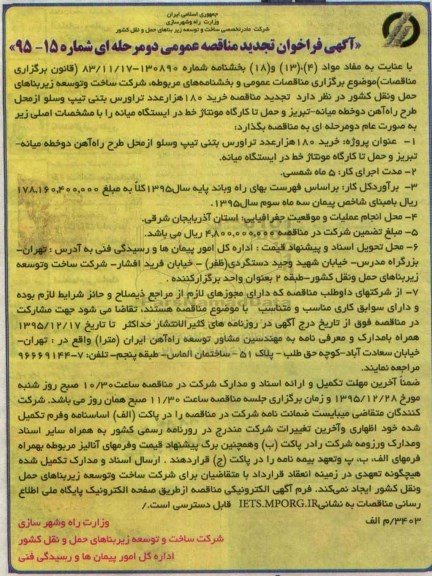 جمهوری اسلامی ایران
وزارت راه وشهرسازی
شرکت مادرتخصصی ساخت و توسعه زیربناهای حمل و نقل کشور
«آگهی فراخوان تجدید مناقصه عمومی دومرحله ای شماره ۱۵-۹۵»
با عنایت به مفاد مواد (۴)،(۱۳) و(۱۸) بخشنامه شماره ۱۳۰۸۹۰-۸۳/۱۱/۱۷ (قانون برگزاری
مناقصات)موضوع برگزاری مناقصات عمومی و بخشنامه‌های مربوطه، شرکت ساخت وتوسعه زیربناهای
حمل ونقل کشور در نظر دارد تجدید مناقصه خرید ۱۸۰هزارعدد تراورس بتنی تیپ وسلو ازمحل
طرح راه‌آهن دوخطه میانه-تبریز و حمل تا کارگاه مونتاژ خط در ایستگاه میانه را با مشخصات اصلی زیر
به صورت عام دومرحله ای به مناقصه بگذارد:
۱- عنوان پروژه: خرید ۱۸۰هزارعدد تراورس بتنی تیپ وسلو ازمحل طرح راه‌آهن دوخطه میانه-
تبریز و حمل تا کارگاه مونتاژ خط در ایستگاه میانه.
۲- مدت اجرای کار: ۵ ماه شمسی.
۳- برآوردکل کار: براساس فهرست بهای راه وباند پایه سال۱۳۹۵کلاً به مبلغ ۱۷۸،۱۶۰،۴۰۰،۰۰۰
ریال بامبنای شاخص پیمان سه ماه سوم سال۱۳۹۵.
۴- محل انجام عملیات و موقعیت جغرافیایی: استان آذربایجان شرقی.
۵- مبلغ تضمین شرکت در مناقصه ۴،۸۰۰،۰۰۰،۰۰۰ ریال می باشد.
۶- محل تحویل اسناد و پیشنهاد قیمت : اداره کل امور پیمان ها و رسیدگی فنی به آدرس : تهران-
بزرگراه مدرس- خیابان شهید وحید دستگردی(ظفر) - خیابان فرید افشار- شرکت ساخت وتوسعه
زیربناهای حمل ونقل کشور-طبقه ۲ بعنوان واحد برگزارکننده .
۷- از شرکتهای داوطلب مناقصه که دارای مجوزهای لازم از مراجع ذیصلاح و حائز شرایط لازم بوده
و دارای سوابق کاری مناسب و متناسب با موضوع مناقصه هستند، تقاضا می شود جهت مشارکت
در مناقصه فوق از تاریخ درج آگهی در روزنامه های کثیرالانتشار حداکثر تا تاریخ ۱۳۹۵/۱۲/۱۷
همراه بامدارک و معرفی نامه به مهندسین مشاور توسعه راه‌آهن ایران (مترا) واقع در : تهران-
خیابان سعادت آباد-کوچه حق طلب - پلاک ۵۱ - ساختمان الماس- طبقه پنجم- تلفن: ۷-۹۶۶۶۹۱۴۴
مراجعه نمایند.
ضمناً آخرین مهلت تکمیل و ارائه اسناد و مدارک شرکت در مناقصه ساعت۱۰/۳۰ صبح روز شنبه
مورخ ۱۳۹۵/۱۲/۲۸ و زمان برگزاری جلسه مناقصه ساعت ۱۱/۳۰ صبح همان روز می باشد. شرکت
کنندگان متقاضی میبایست ضمانت نامه شرکت در مناقصه را در پاکت (الف) اساسنامه وفرم تکمیل
شده خود اظهاری وآخرین تغییرات شرکت مندرج در روزنامه رسمی کشور به همراه سایر اسناد
ومدارک ورزومه شرکت رادر پاکت (ب) وهمچنین برگ پیشنهاد قیمت وفرمهای آنالیز مربوطه بهمراه
فرمهای الف، ب، پ وتعهد بیمه نامه را در پاکت (ج) قراردهند . ارسال اسناد و مدارک تکمیل شده
هیچگونه تعهدی در زمینه انعقاد قرارداد با متقاضیان برای شرکت ساخت وتوسعه زیربناهای حمل
ونقل کشور ایجاد نمی‌کند. فرم آگهی الکترونیکی مناقصه ازطریق صفحه الکترونیک پایگاه ملی اطلاع
رسانی مناقصات به نشانیIETS.MPORG.IR قابل دسترسی است./
۳۴۰۳/م الف
وزارت راه وشهر سازی
شرکت ساخت و توسعه زیربناهای حمل و نقل کشور
اداره کل امور پیمان ها و رسیدگی فنی